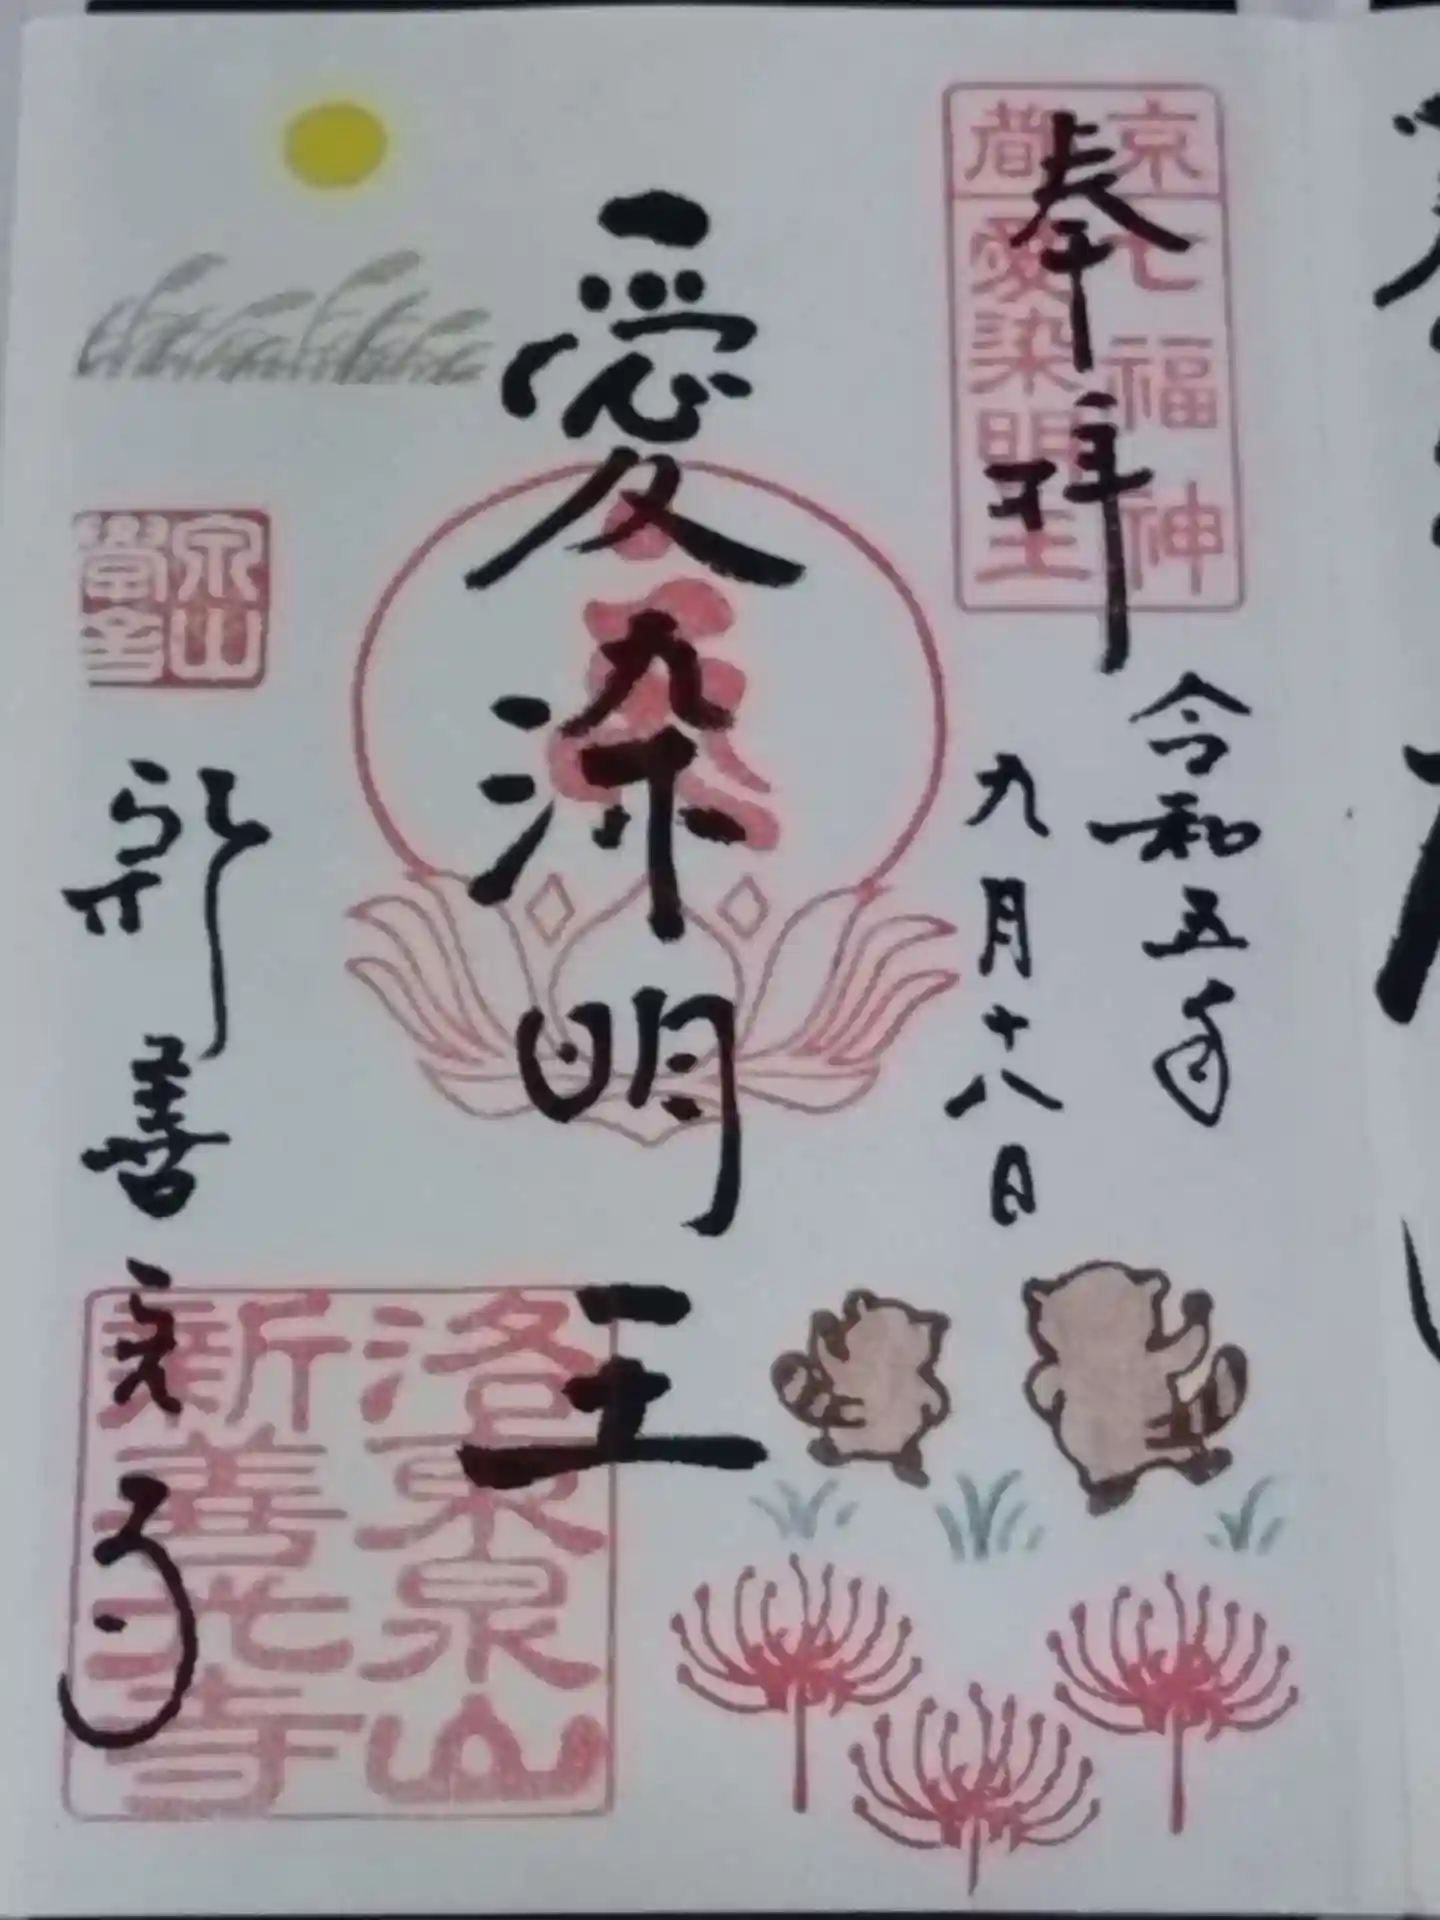 奉拝
京都
七福神
愛染明王
令和五年
九月十八日
愛染明王
泉山
新善光寺
洛東泉山
新善光寺